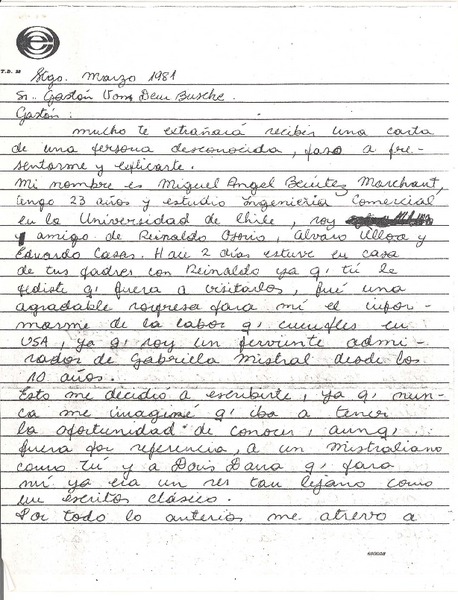 T.D. 28
Stgo. Marzo 1981
Sr. Gastón Von Dem Bussche.
Gastón:
mucho te extrañará recibir una carta
de una persona desconocida, paso a pre-
sentarme y explicarte.
Mi nombre es Miguel Angel Benitez Marchant,
tengo 23 años y estudio Ingeniería Comercial
en la Universidad de Chile, soy
y amigo de Reinaldo Osorio, Alvaro Ulloa y
Eduardo Casas. Hace 2 días estuve en casa
de tus padres con Reinaldo ya q' tú le
pediste q' fuera a visitarlos, fué una
agradable sorpresa para mí el infor-
marme de la labor q' cumples en
USA, ya q' soy un ferviente admi-
rador de Gabriela Mistral desde los
10 años.
Esto me decidió a escribirte, ya q' nun-
ca me imaginé q' iba a tener
la oportunidad de conocer, aunq'
fuera por referencia, a un Mistraliano
como tú y a Doris Dana q' para
mí ya era un ser tan lejano como
un escritor clásico.
Por todo lo anterior me atrevo a